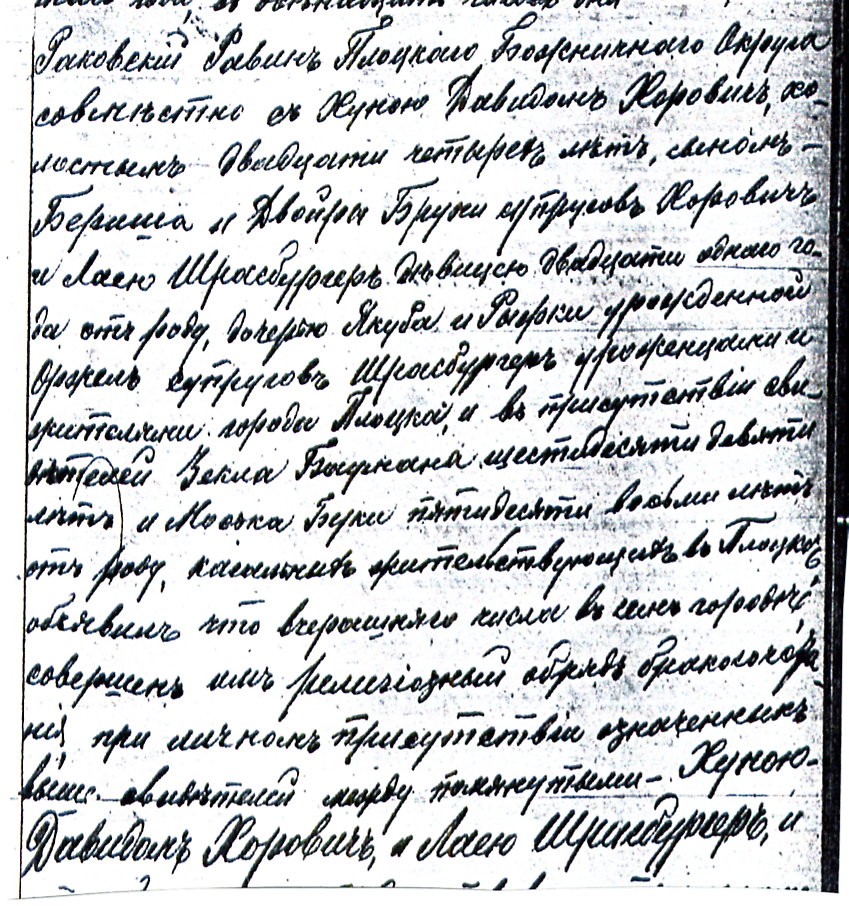 Раковскій Равинъ Плоцкаго Божничнаго Округа
совмѣстно съ Хуною Давидомъ Хоровичъ, хо-
лостымъ двадцати четырехъ лѣтъ, сыномъ-
Бериша и Двойры Брухи супруговъ Хоровичъ
и Лаею Шрасбургеръ дѣвицею двадцати одного го-
да отъ роду, дочерью Якуба и Рывки урожденной
супруговъ Шрасбургеръ уроженцами и
жителями города Плоцка, и въ присутствіи сви-
дѣтелей Зекла шестидесяти девяти
лѣтъ и Моська Буки пятидесяти восьми лѣтъ
отъ роду, жительствующихъ въ Плоцкѣ,
объявилъ что вчерашняго числа въ семъ городѣ,
совершенъ имъ религіозный обрядъ бракосочета-
нія при личномъ присутствіи означенныхъ
выше свидѣтелей между помянутыми- Хуною-
Давидомъ Хоровичъ, и Лаею Шрасбургеръ, и